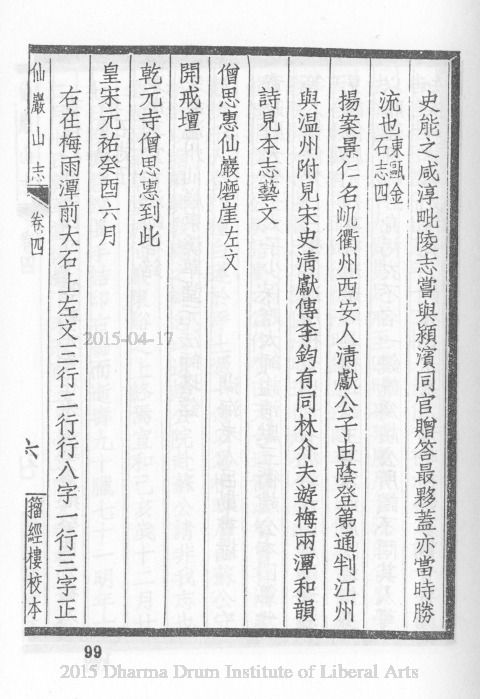 史能之咸淳毗陵志嘗與潁濱同官贈答最夥蓋亦當時勝
流也東甌金石志四
揚案景仁名㞦衢州西安人清獻公子由蔭登第通判江州
與温州附見宋史清獻傳李鈞有同林介夫遊梅雨潭和韻
詩見本志藝文
僧思惠仙巖磨崖左文
開戒壇
乾元寺僧思惠到此
皇宋元祐癸酉六月
右在梅雨潭前大石上左文三行二行行八字一行三字正
仙巖山志 卷四 六 籀經樓校本
99
2015-04-17
2015 Dharma Drum Institute of Liberal Arts